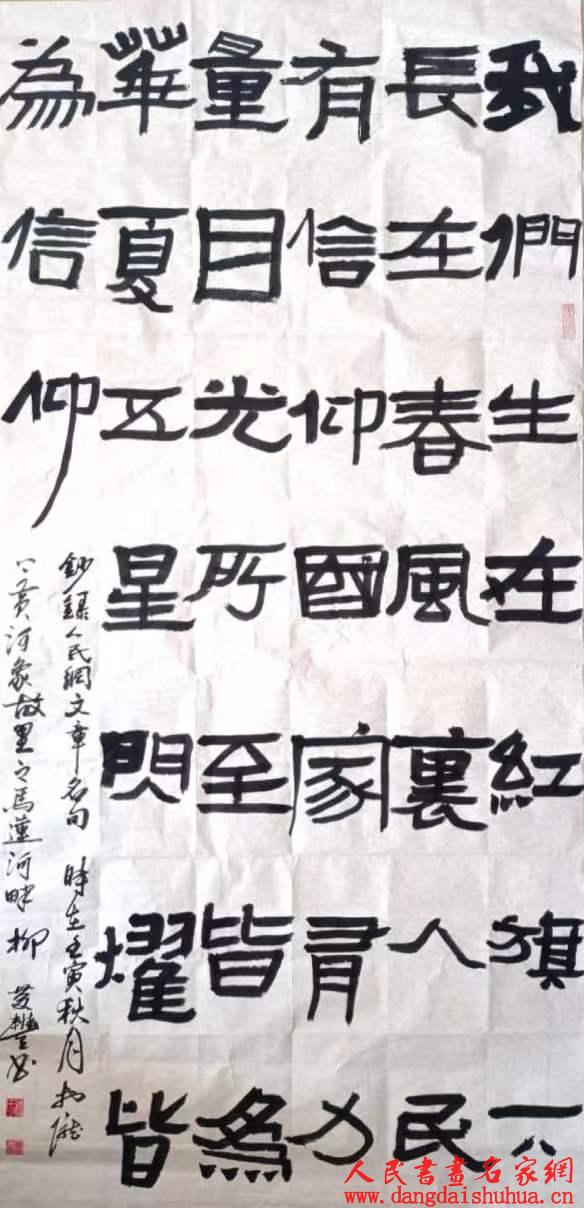 我們生在紅旗下
長在春風裏人民
有信仰國家有力
量目光所至皆為
華夏五星閃耀皆
為信仰
鈔錄人民網文章名句 時在壬寅秋月於隴
上黃河象故里之馬蓮河畔 柳 豐書
人民書畫名家網
www.dangdaishuhua.cn